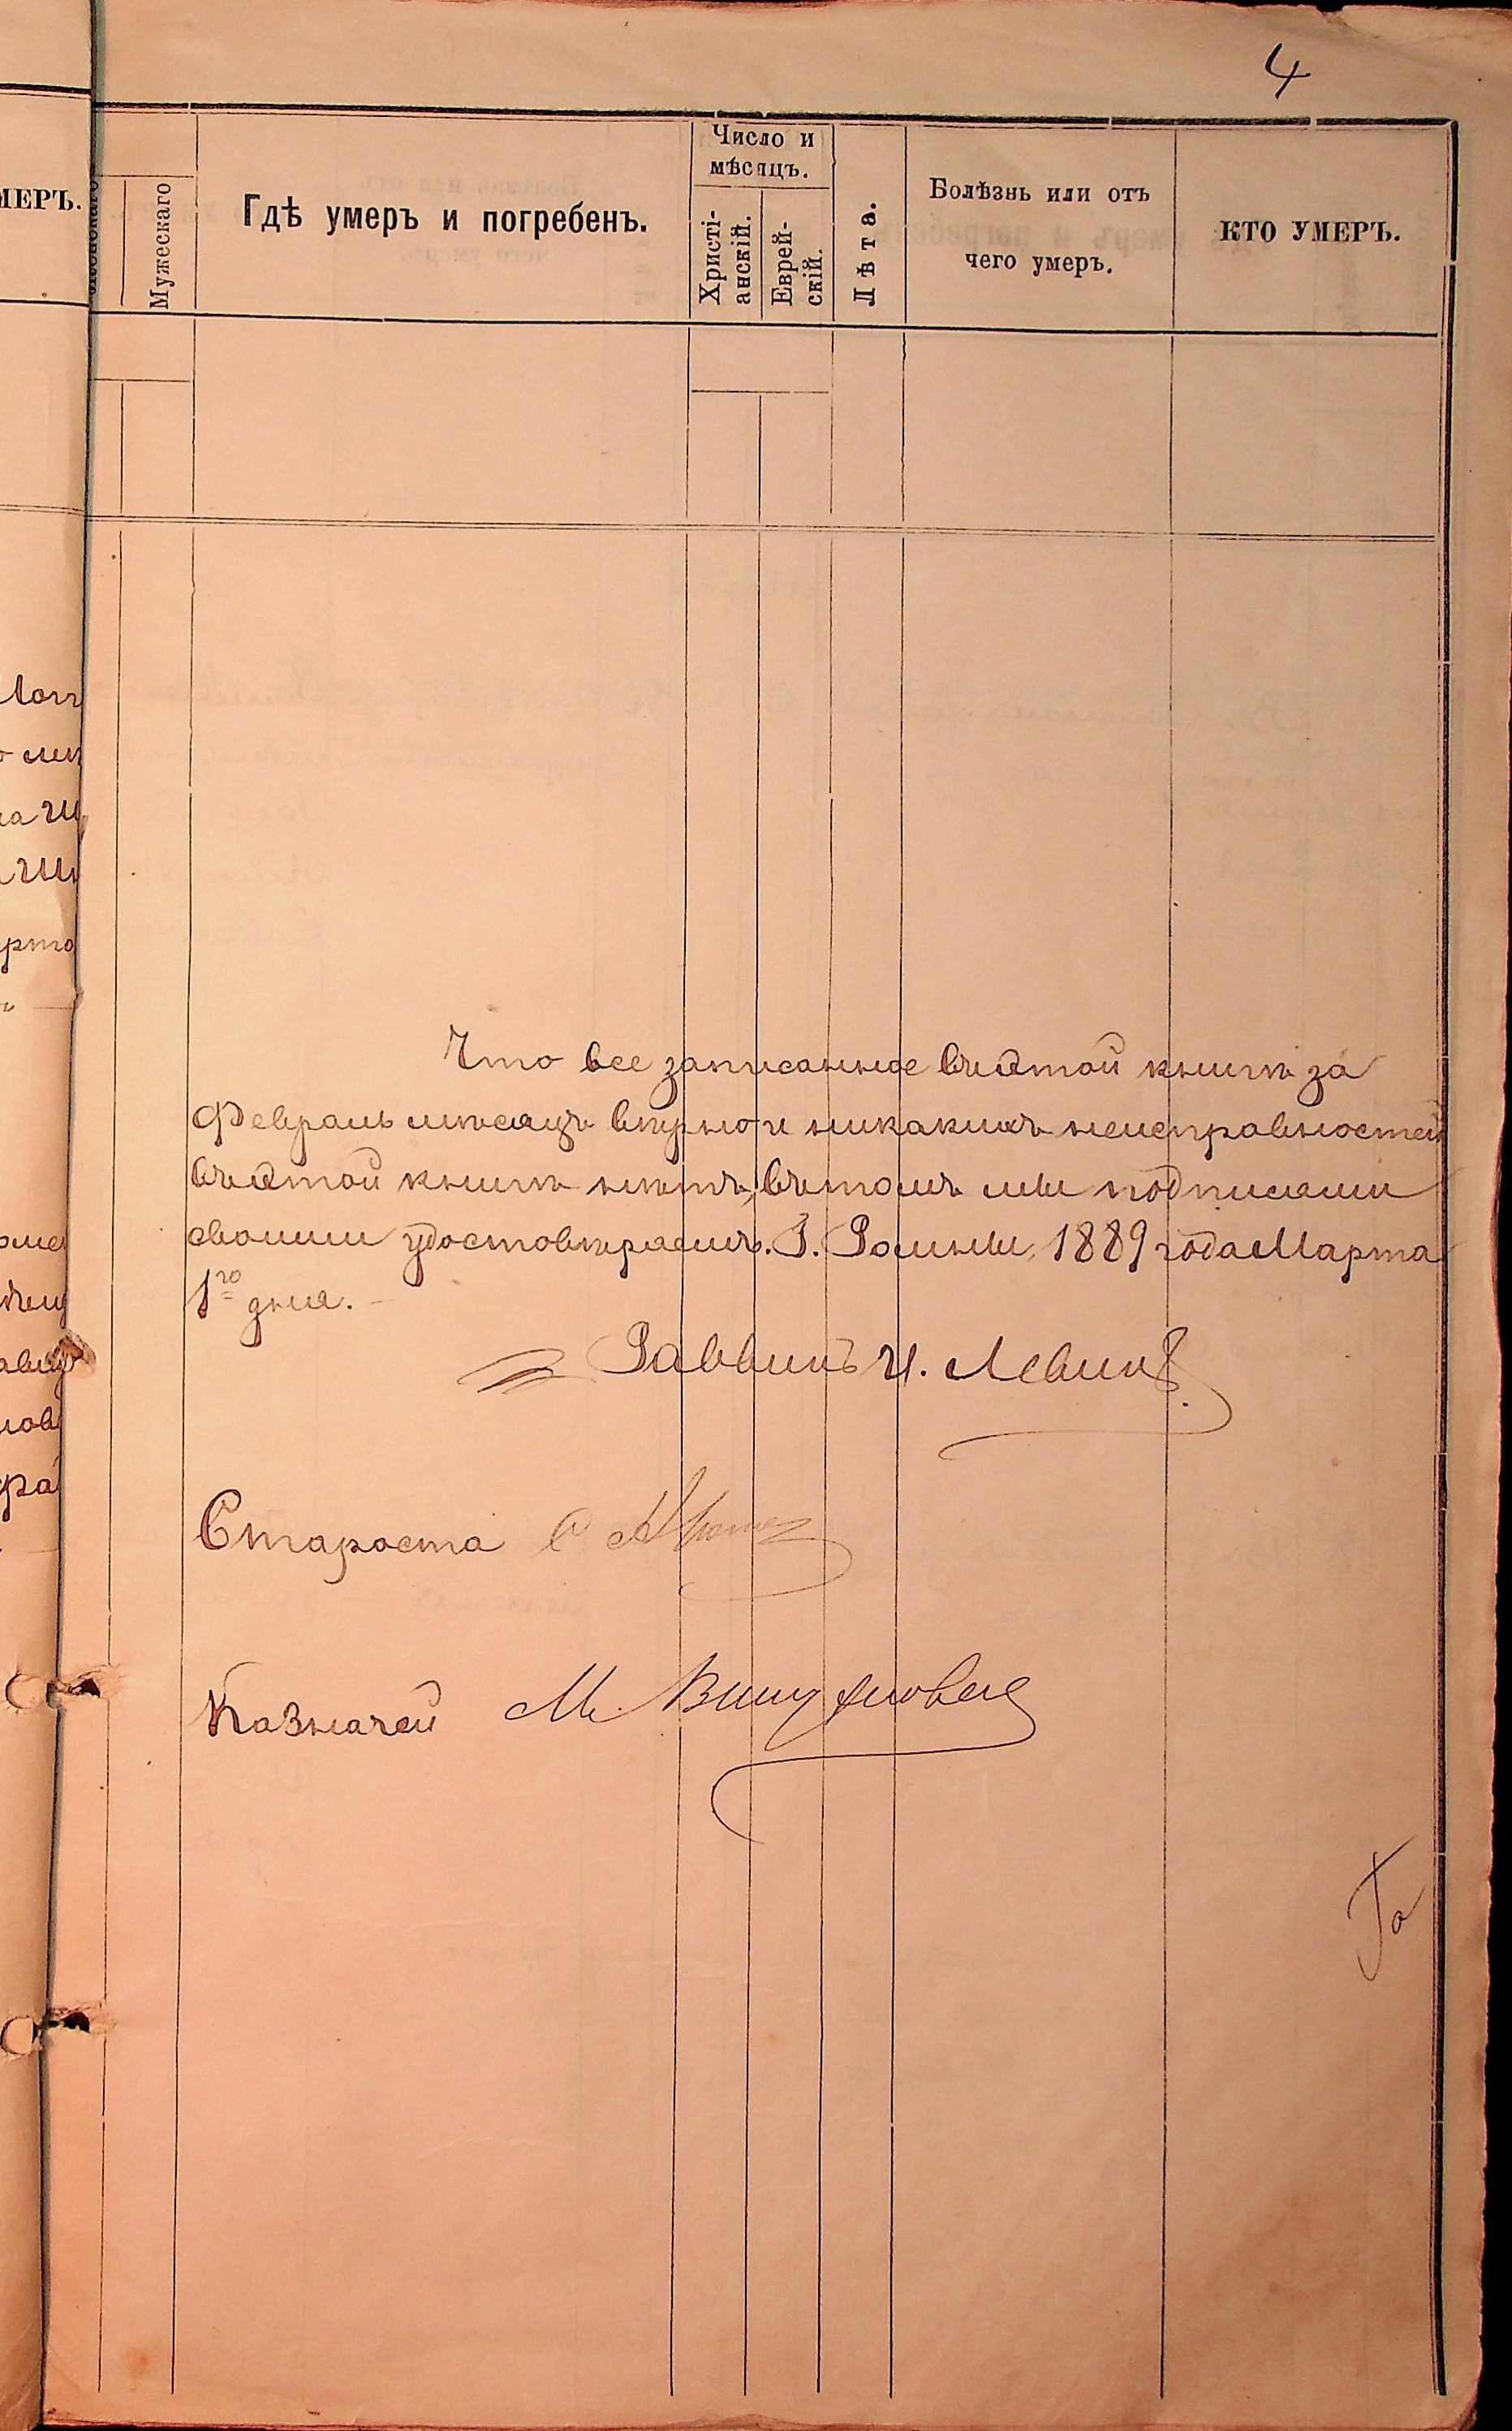 4
МЕРЪ.
Мужескаго
Гдѣ умеръ и погребенъ.
Число и
мѣсяцъ.
Христі-
анскій.
Еврей-
скій.
Лѣта.
Болѣзнь или отъ
чего умеръ.
КТО УМЕРЪ.
Что все записанное въ этой книгѣ за
Февраль мѣсяцъ вѣрно и никакихъ неисправностей
въ этой книгѣ нѣтъ, въ томъ мы подписями
своими удостовѣряемъ. Г. Ромны, 1889 года Марта
1го дня.
Раввинъ И. Левинъ
Староста С
Казначей М.